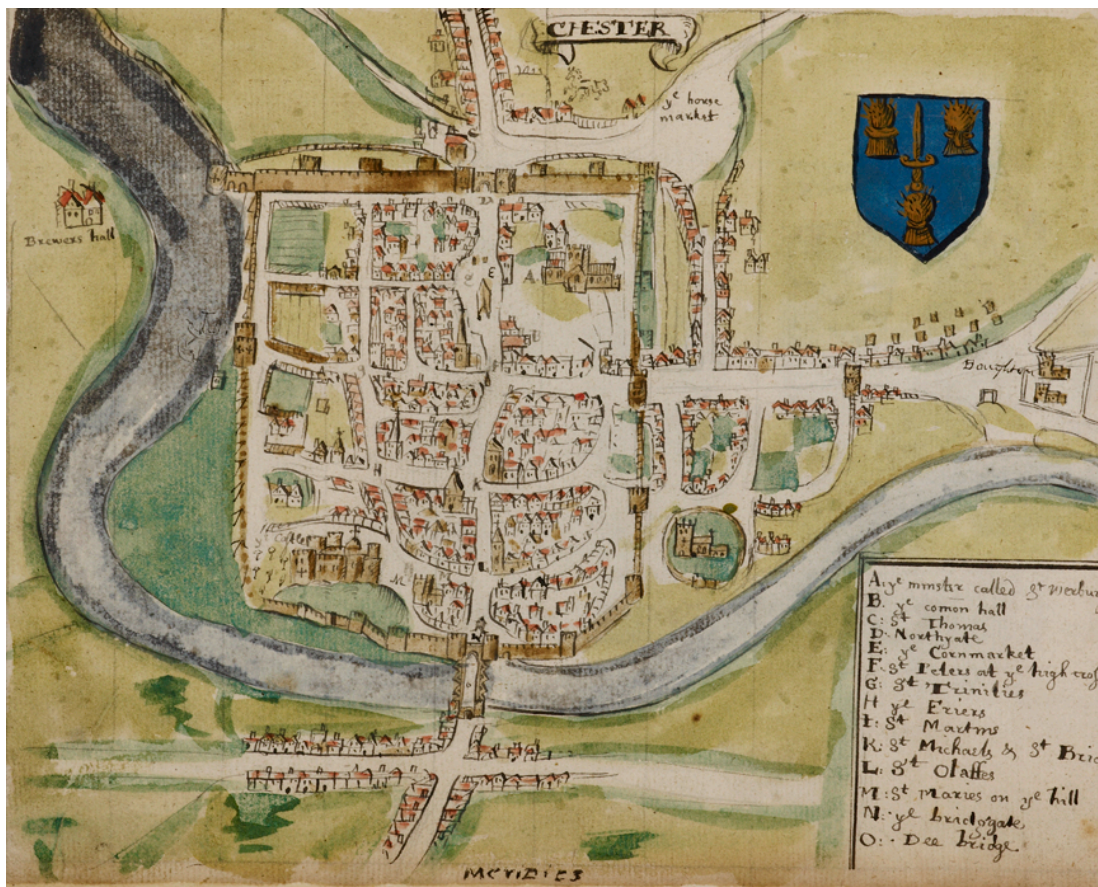 CHESTER
ye horse
market
Brewers hall
D
E
A
Boughton
H
K
Castle
M
L
N
A: ye minster called St Werbur
B. ye comon hall
C: St Thomas
D: Northgate
E: ye Cornmarket
F: St Peters at ye high cros
G: St Trinities
H ye Friers
I: St Martins
K: St Michaels & St Brid
L: St Olaffes
M: St Maries on ye hill
N: ye bridggate
O: Dee bridge
MERIDIES